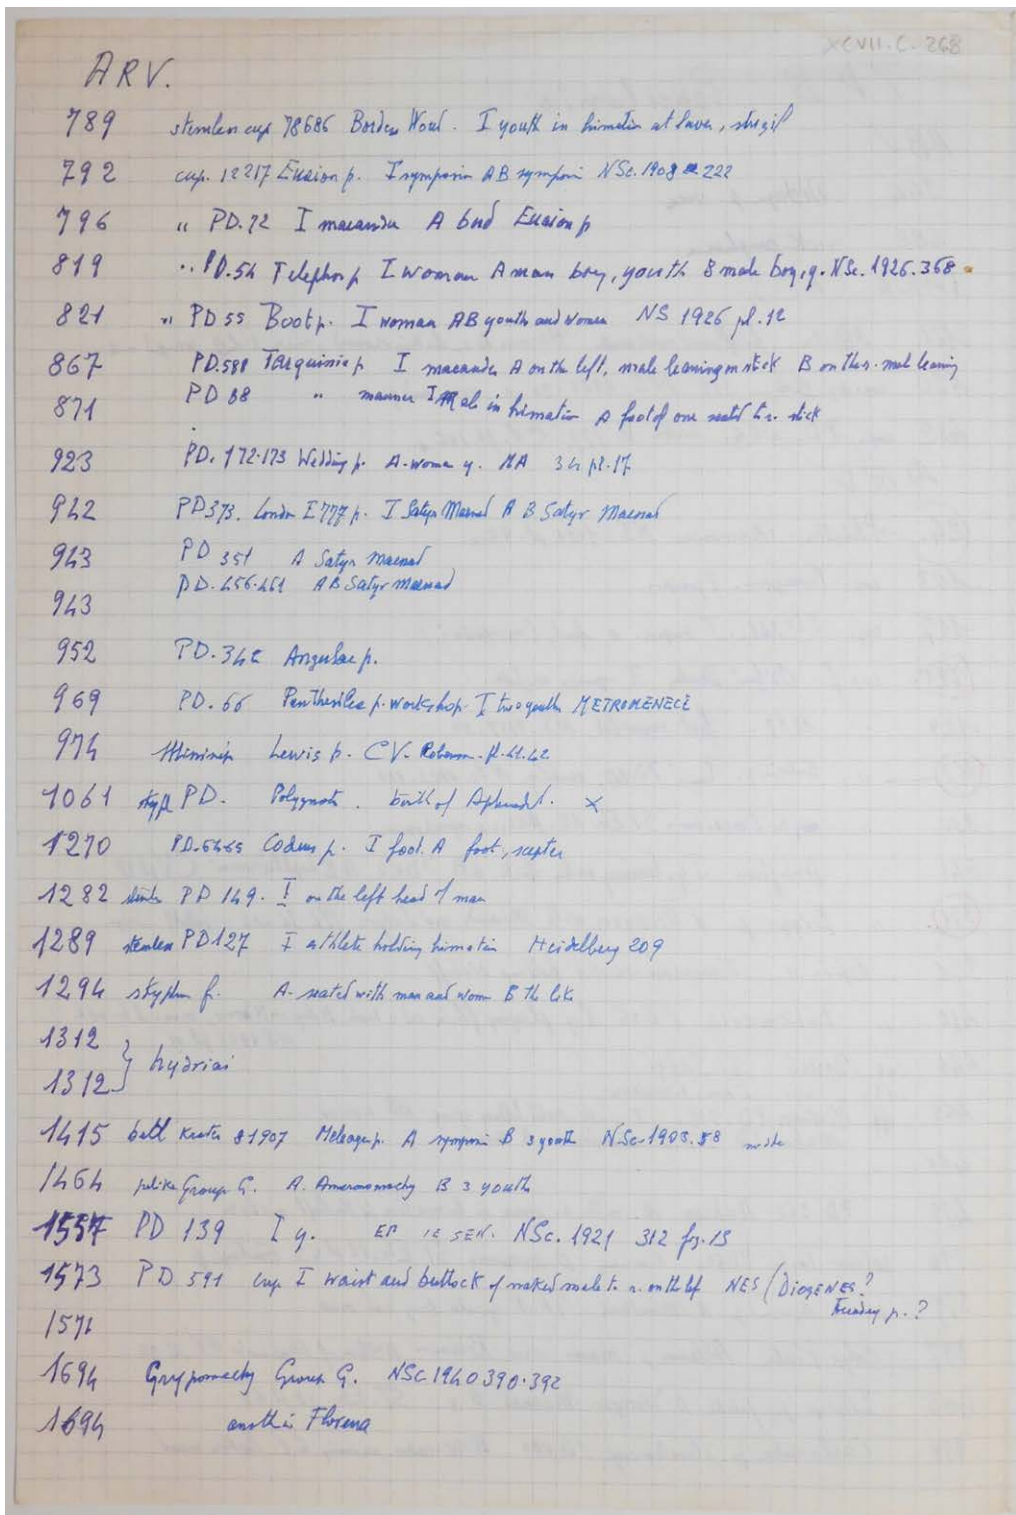 XCVII.C. 268
ARV.
789 stemless cup 78686 I youth in himation at laver, strigil
792 cup. 12217 Euaion p. I symposion AB symposion NSc. 1908 222
796 " PD.72 I maeander A Euaion p
819 " PD.54 Telephos p I woman A man boy, youth B male boy, y. NSc. 1926.368
821 " PD 55 Boot p. I woman AB youth and women NS 1926 pl.12
867 PD.588 Tarquinia p I maeander A on the left, male leaning on stick B on the r. male leaning
871 PD 88 " manner I Male in himation A foot of one seated to r. stick
923 PD. 172-173 Wedding p. A. woman y. MA 34 pl.17
942 PD373. London E777 p. I Satyr Maenad A B Satyr Maenad
943 PD 351 A Satyr maenad
PD. 456-461 AB Satyr Maenad
943
952 PD. 342 Angular p.
969 PD. 66 Penthesilea p. workshop. I two youths METROMENECE
974 Lewis p. CV. pl. 41.42
1061 PD. Polygnotos. birth of Aphrodit. x
1270 PD.64.65 Codrus p. I foot. A foot, scepter
1282 PD 149. I on the left head of man
1289 stemless PD127 I athlete holding himation Heidelberg 209
1294 skyphos fr. A. seated with man and woman B the like
1312
} hydriai
1312
1415 bell krater 81907 Meleager p. A symposion B 3 youth NSc. 1905.58
1464 pelike Group G. A. Amazonomachy B 3 youth
1557 PD 139 I y. NSc. 1921 312 fig.13
1573 PD 591 cup I waist and buttock of naked male to r. on the lef NES (DiogENES?
p.?
1571
1694 Grypomachy Group G. NSc 1940 390.392
1694 another Florence